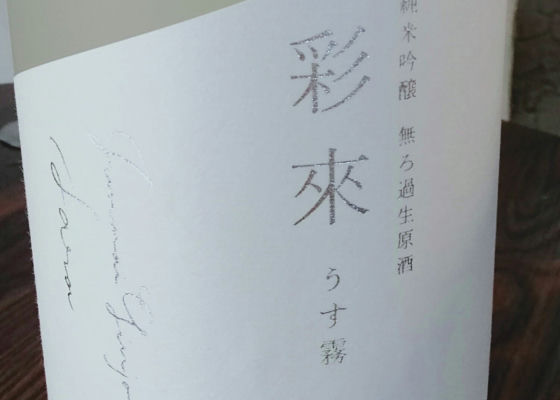 純米吟醸 無ろ過生原酒
彩來 うす霧
Junmai Ginjo
Sara